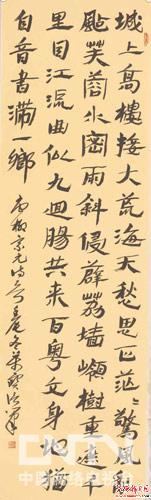 城上高樓接大荒海天愁思正茫茫驚風亂
颭芙蓉水密雨斜侵薜荔墻嶺樹重遮千
里目江流曲似九迴腸共来百粤文身地猶
自音書滯一鄉 柳宗元诗